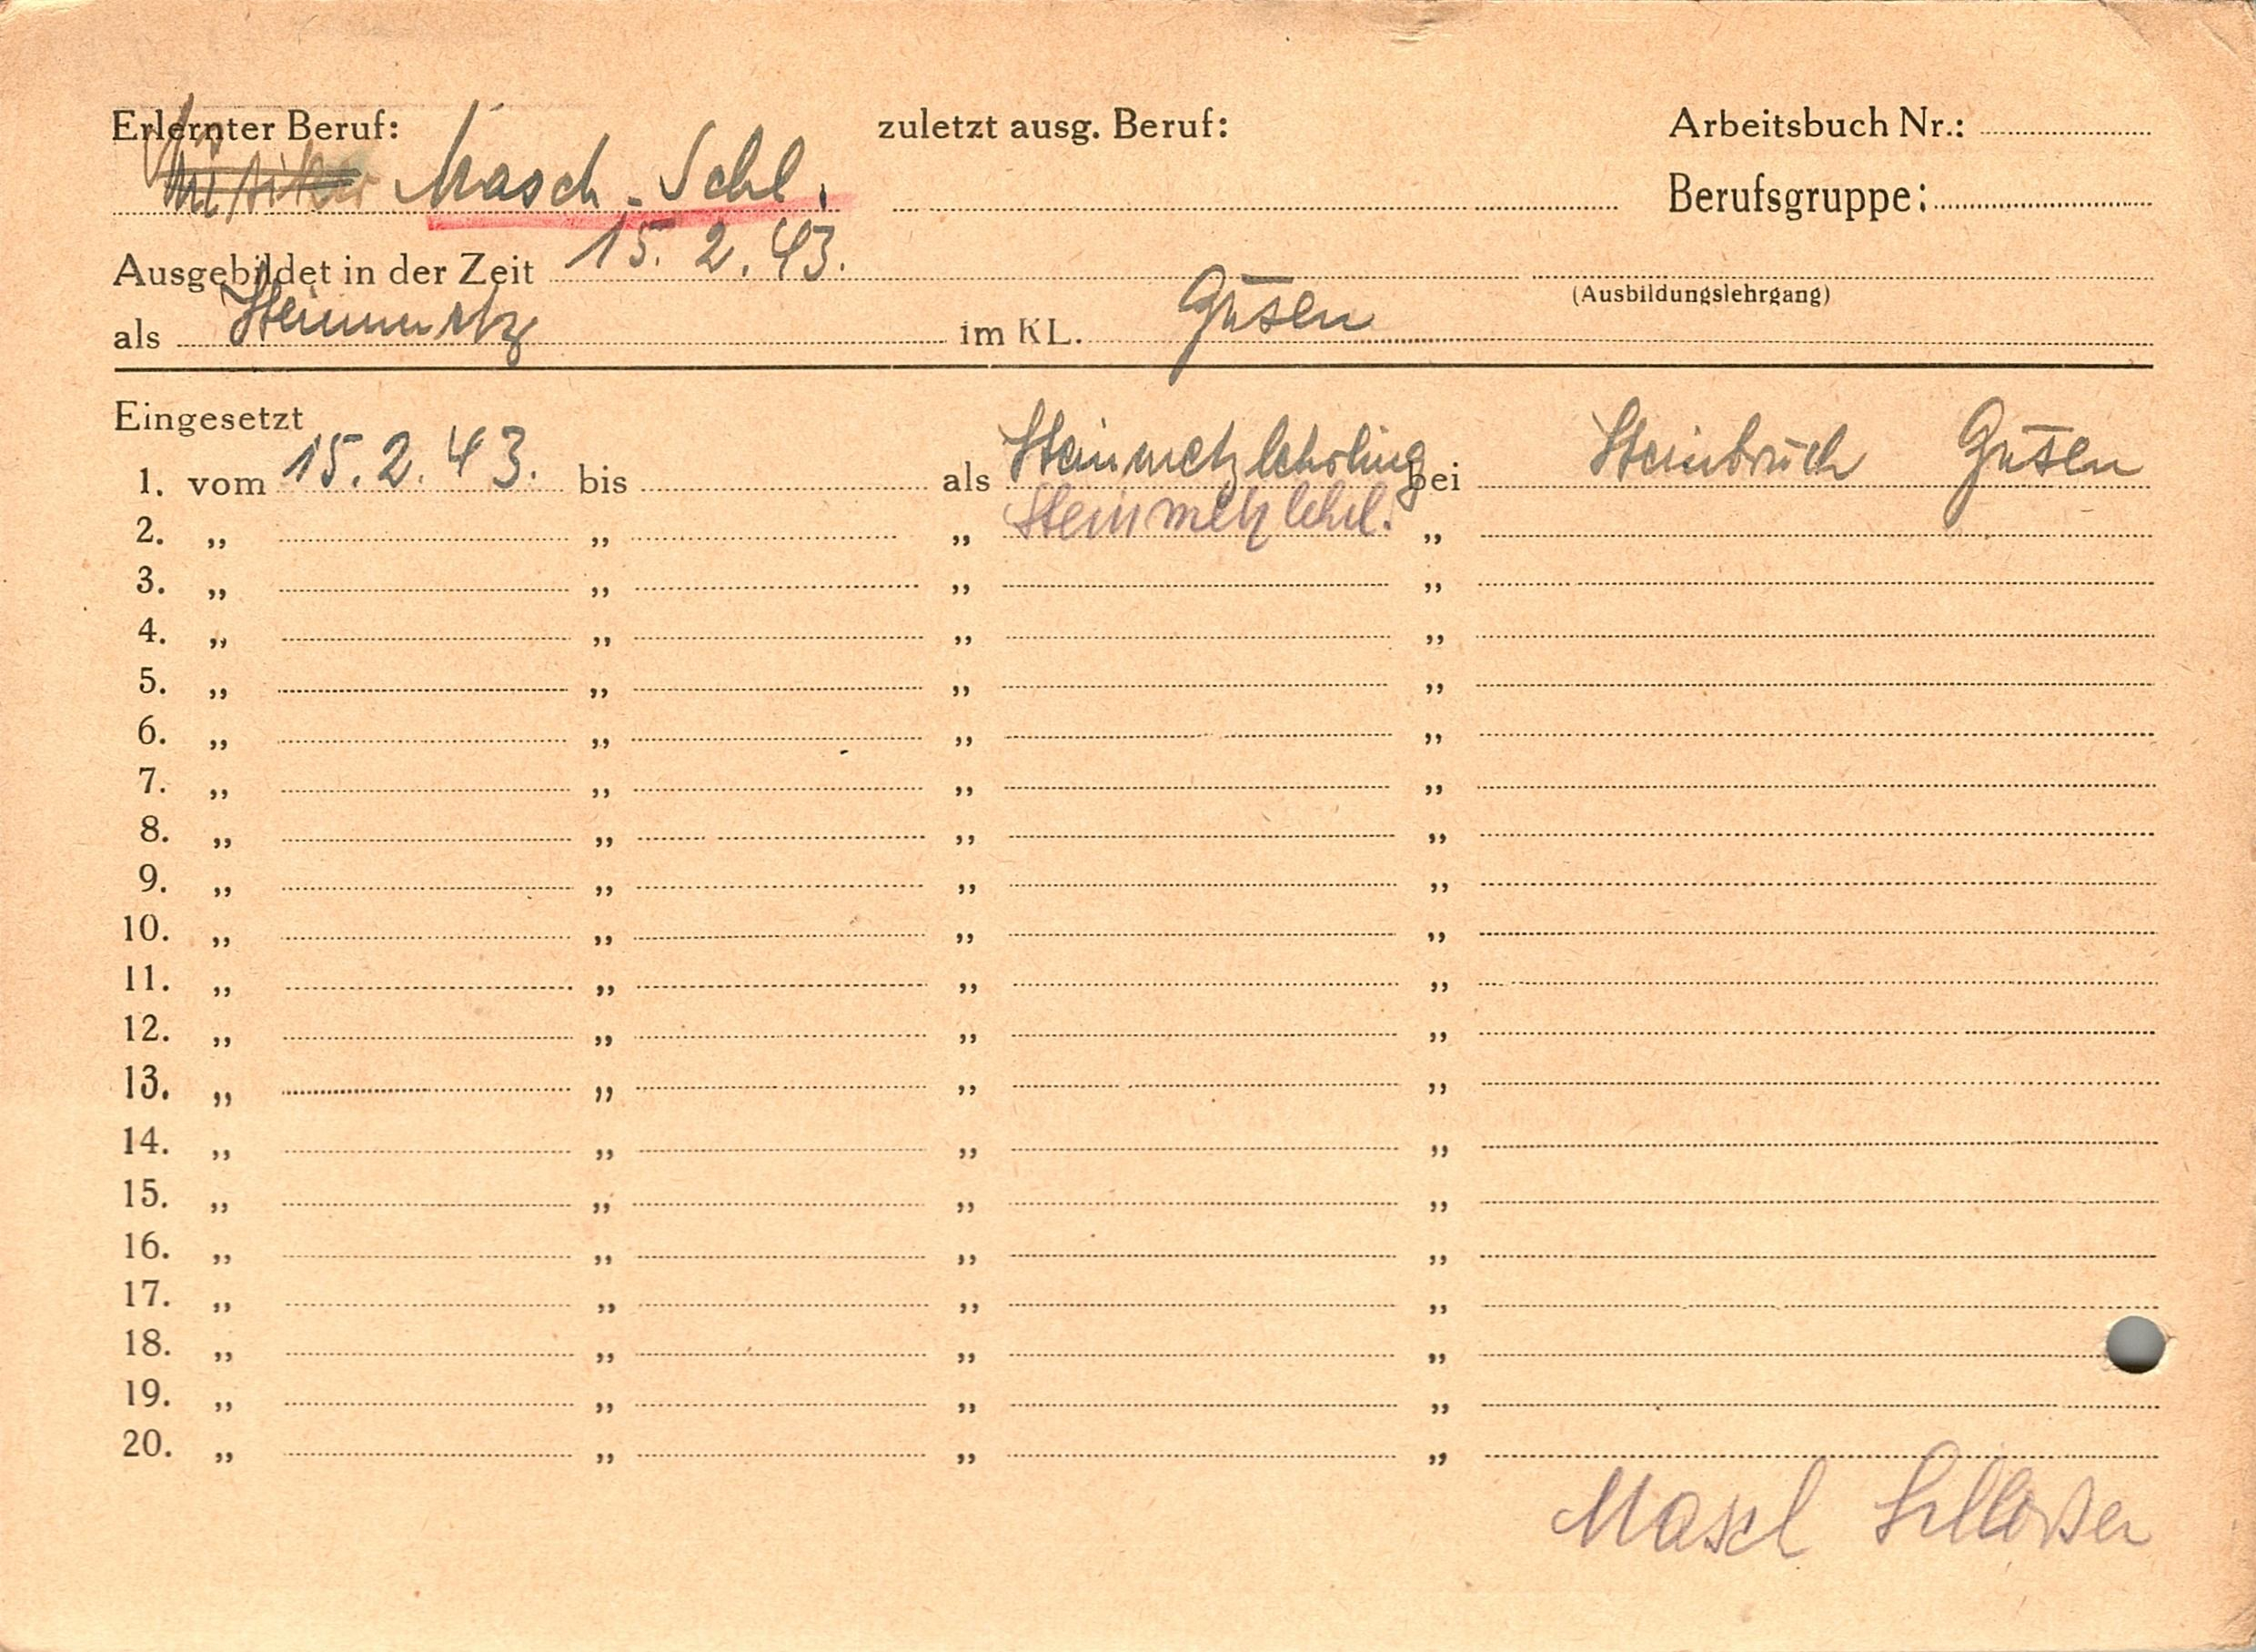 Erlernter Beruf: zuletzt ausg. Beruf: Arbeitsbuch Nr.:
Masch.-Schl. Berufsgruppe:
Ausgebildet in der Zeit 15. 2. 43.
(Ausbildungslehrgang)
als Steinmetz im KL. Gusen
Eingesetzt
1. vom 15. 2. 43. bis als Steinmetzlehrling bei Steinbruch Gusen
2. „ „ „ Steinmetzlehrl. „
3. „ „ „ „
4. „ „ „ „
5. „ „ „ „
6. „ „ „ „
7. „ „ „ „
8. „ „ „ „
9. „ „ „ „
10. „ „ „ „
11. „ „ „ „
12. „ „ „ „
13. „ „ „ „
14. „ „ „ „
15. „ „ „ „
16. „ „ „ „
17. „ „ „ „
18. „ „ „ „
19. „ „ „ „
20. „ „ „ „
Masch Schlosser